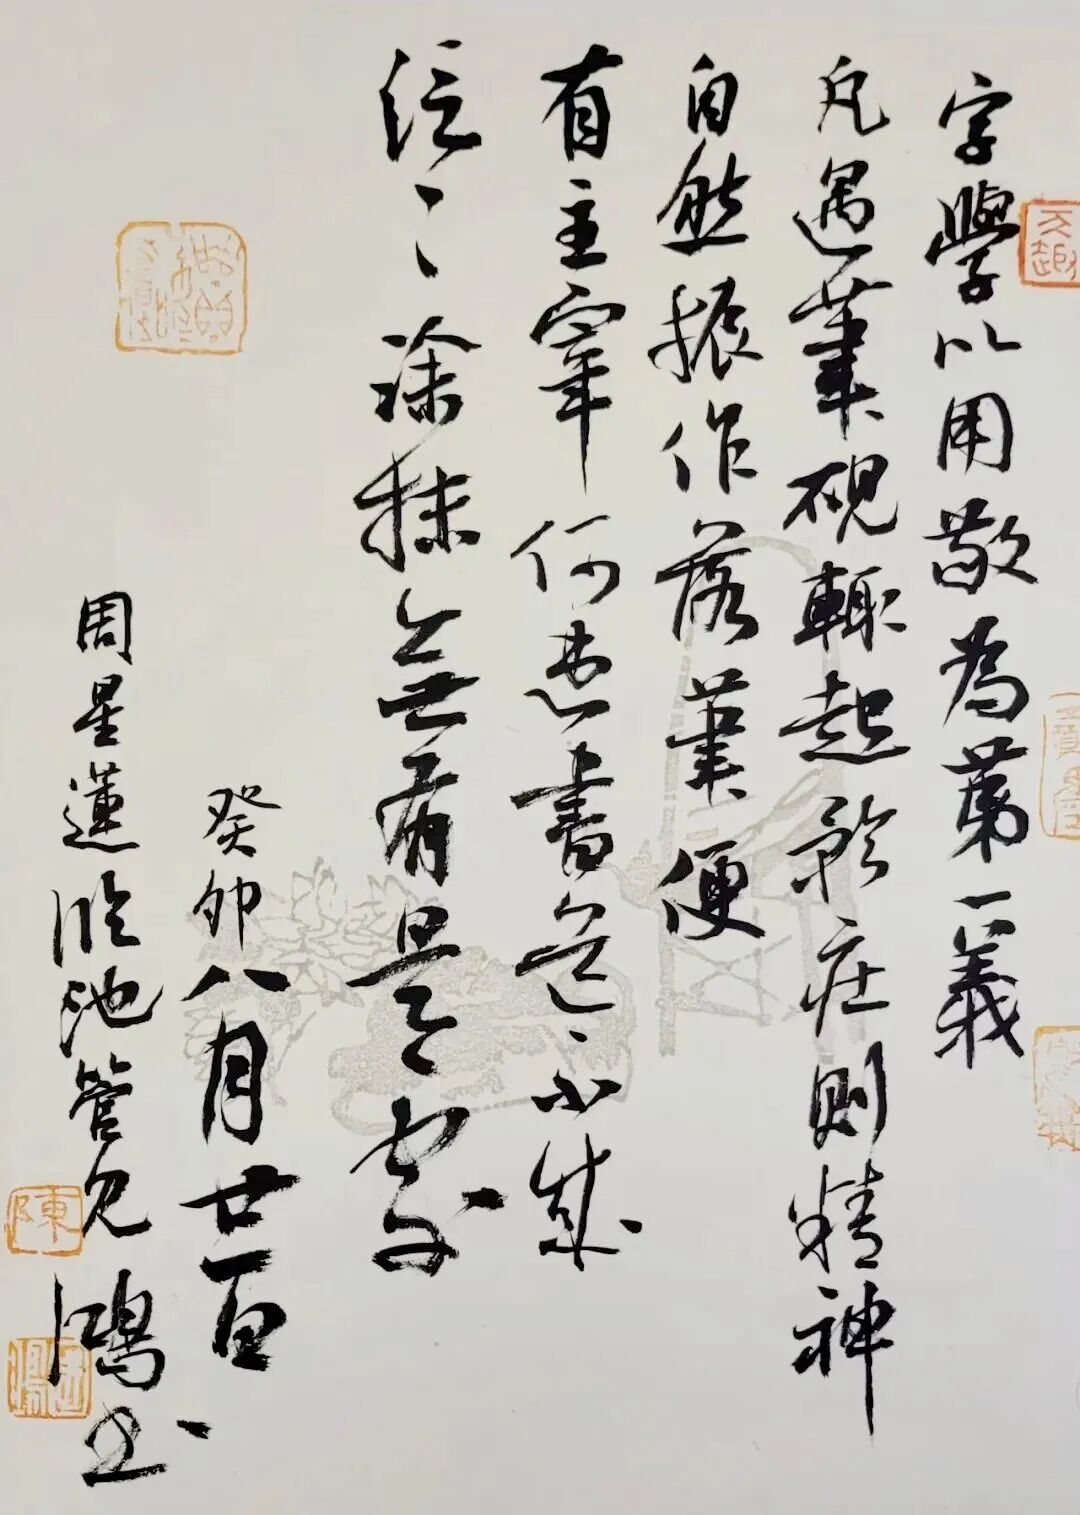 字學以用敬為第一義
凡遇筆硯輒起矜庄則精神
自然振作落筆便
有主宰何患書道不成
泛〻塗抹無有是處
癸卯八月廿一日
周星蓮臨池管見 鴻书
陳